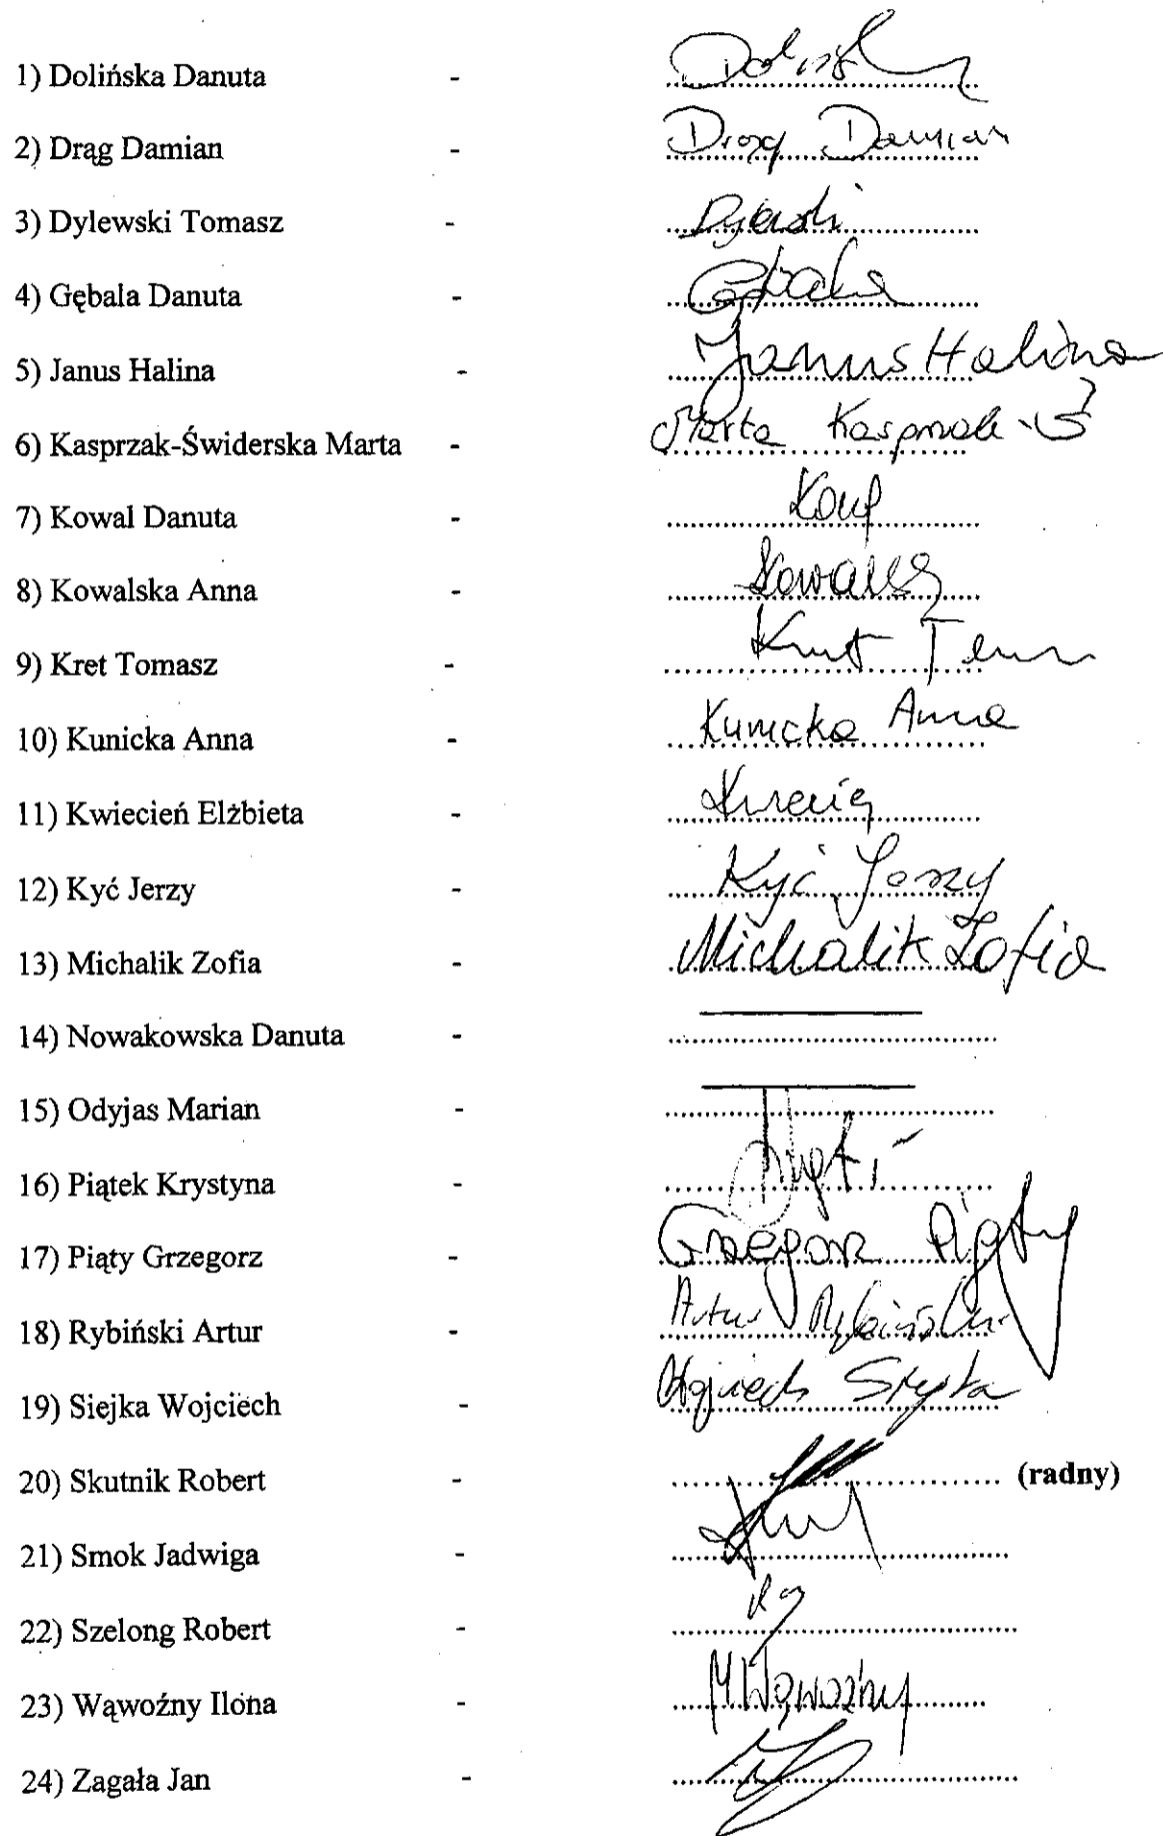 1) Dolińska Danuta - ........................
2) Drąg Damian - Drąg Damian
3) Dylewski Tomasz - ........................
4) Gębala Danuta - Gębala
5) Janus Halina - Janus Halina
6) Kasprzak-Świderska Marta - Marta Kasprzak-Ś
7) Kowal Danuta - ........................
8) Kowalska Anna - ........................
9) Kret Tomasz - Kret
10) Kunicka Anna - Kunicka Anna
11) Kwiecień Elżbieta - ........................
12) Kyć Jerzy - Kyć Jerzy
13) Michalik Zofia - Michalik Zofia
14) Nowakowska Danuta - ........................
15) Odyjas Marian - ........................
16) Piątek Krystyna - ........................
17) Piąty Grzegorz - Grzegorz Piąty
18) Rybiński Artur - Artur Rybiński
19) Siejka Wojciech - Wojciech Siejka
20) Skutnik Robert - ........................ (radny)
21) Smok Jadwiga - ........................
22) Szelong Robert - ........................
23) Wąwoźny Ilona - Wąwoźny
24) Zagała Jan - ........................